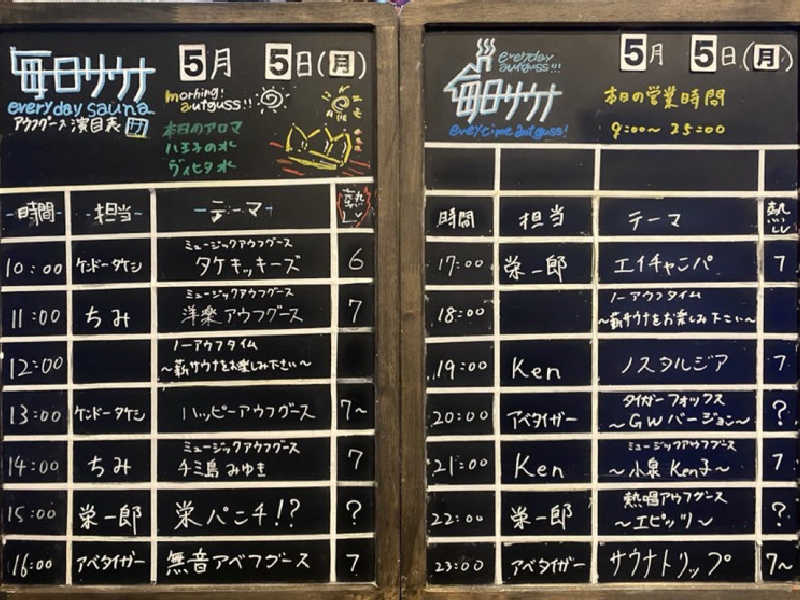 毎日サウナ
everyday sauna
アウフグース演目表
5月 5日(月)
morning! autguss!!
本日のアロマ
八王子の水
ヴィヒタ水
時間 担当 テーマ 熱Lv
10:00 ケンドータケシ ミュージックアウフグース
タケキッキーズ 6
11:00 ちみ ミュージックアウフグース
洋楽アウフグース 7
12:00 ノーアウフタイム
～薪サウナをお楽しみ下さい～
13:00 ケンドータケシ ハッピーアウフグース 7～
14:00 ちみ ミュージックアウフグース
千三島みゆき 7
15:00 栄一郎 栄パニチ!? ?
16:00 アベタイガー 無音アベフグース 7
everyday autguss!!!
毎日サウナ
everytime autguss!
5月 5日(月)
本日の営業時間
9:00～25:00
時間 担当 テーマ 熱Lv
17:00 栄一郎 エイチャンパ 7
18:00 ノーアウフタイム
～薪サウナをお楽しみ下さい～
19:00 Ken ノスタルジア 7
20:00 アベタイガー タイガーフォックス
～GWバージョン～ ?
21:00 Ken ミュージックアウフグース
～小泉Ken子～ 7
22:00 栄一郎 熱唱アウフグース
～エピッツ～ ?
23:00 アベタイガー サウナトリップ 7～